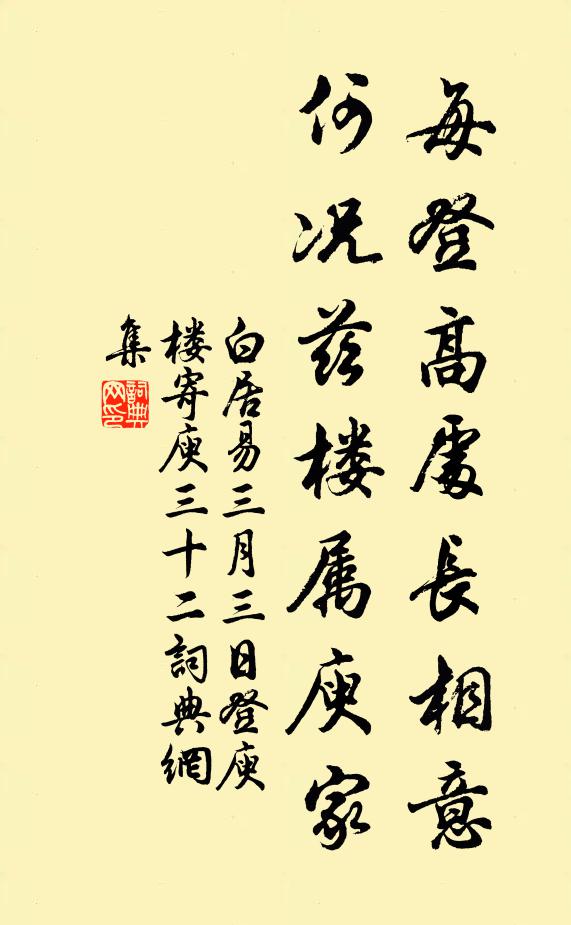 每登高處長相意
何况茲楼属庾家
白居易三月三日登庾
楼寄庾三十二詞典網
集
詞典网印